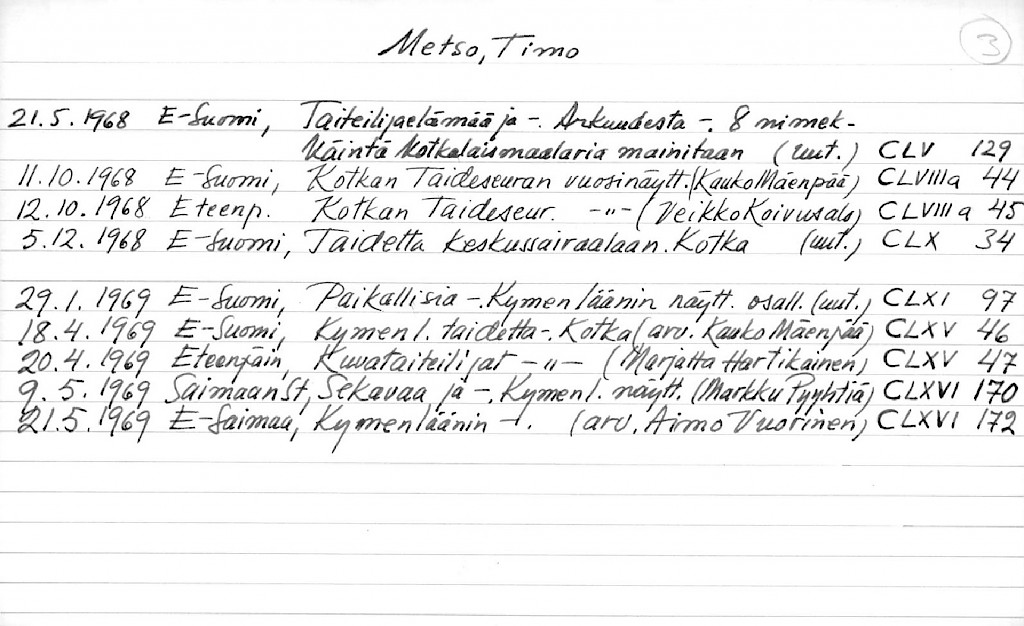 Metso, Timo
3
21.5.1968 E-Suomi, Taiteilijaelämää ja -. Ankuudesta -. 8 nimek-
käintä kotkalaismaalaria mainitaan (uut.) CLV 129
11.10.1968 E-Suomi, Kotkan Taideseuran vuosinäytt. (Kauko Mäenpää) CLVIIIa 44
12.10.1968 Eteenp. Kotkan Taideseur. -"- (Veikko Koivusalo) CLVIIIa 45
5.12.1968 E-Suomi, Taidetta keskussairaalaan. Kotka (uut.) CLX 34
29.1.1969 E-Suomi, Paikallisia -. Kymen läänin näytt. osall. (uut.) CLXI 97
18.4.1969 E-Suomi, Kymen l. taidetta -. Kotka (arv. Kauko Mäenpää) CLXV 46
20.4.1969 Eteenpäin, Kuvataiteilijat -"- (Marjatta Hartikainen) CLXV 47
9.5.1969 Saimaan St, Sekavaa ja -, Kymen l. näytt. (Markku Pyyhtiä) CLXVI 170
21.5.1969 E-Saimaa, Kymen läänin -. (arv. Aimo Vuorinen) CLXVI 172